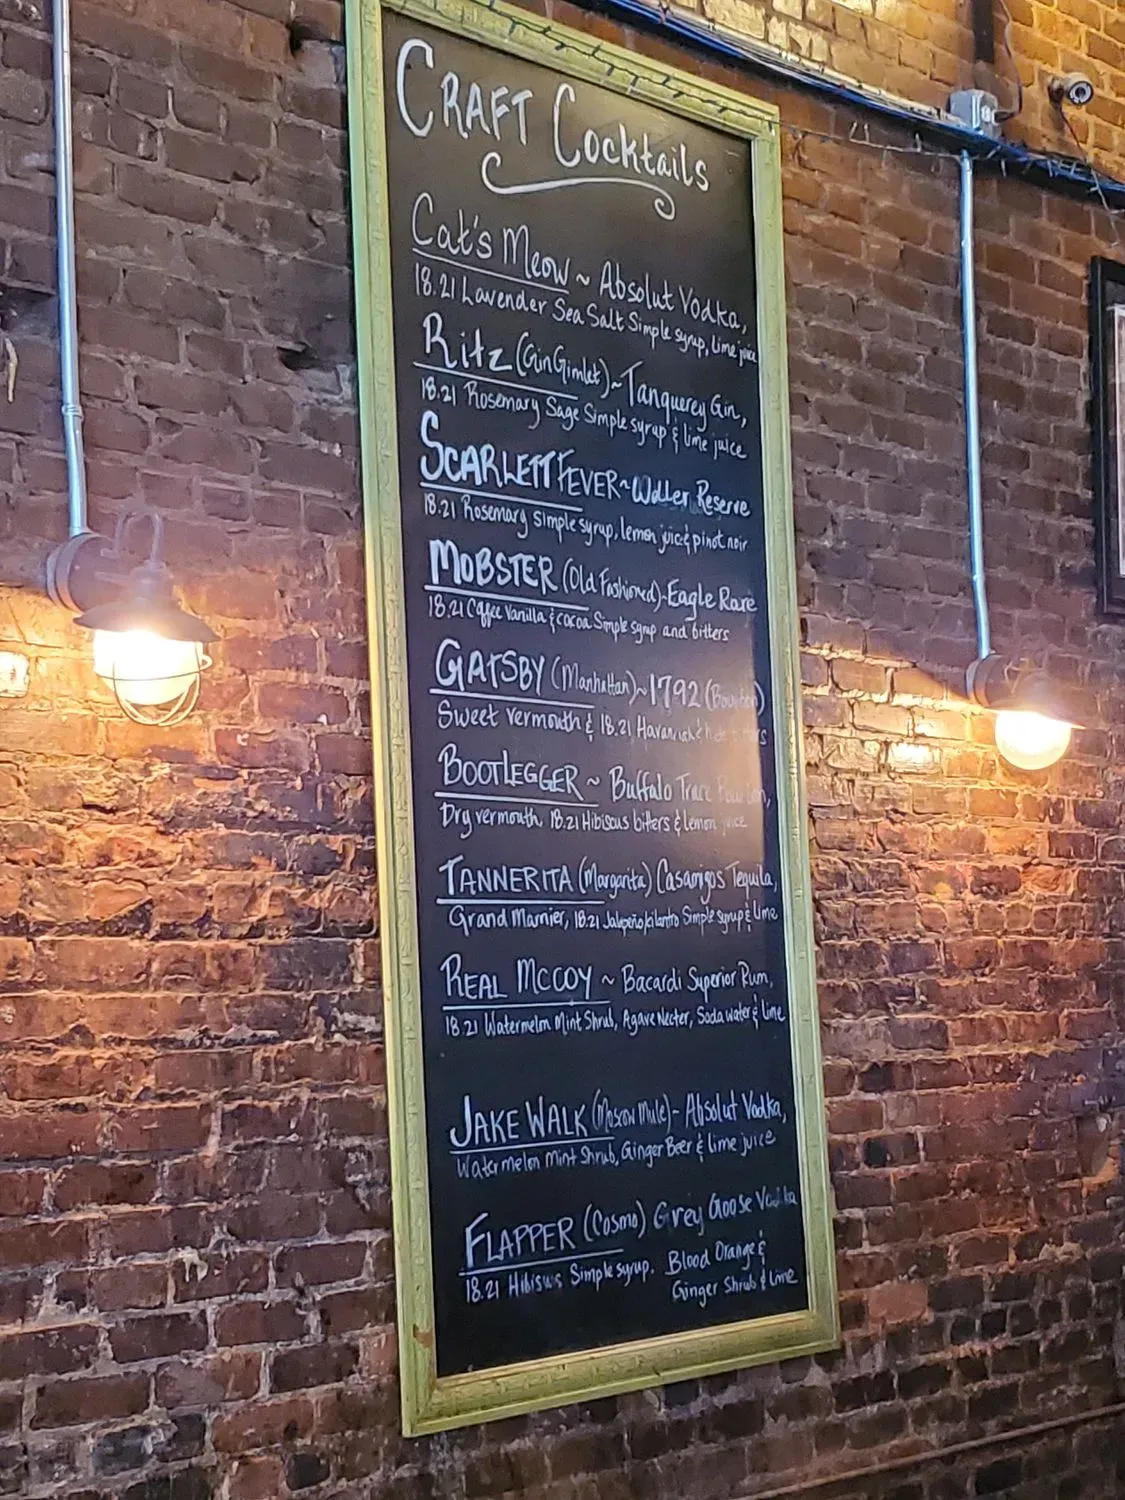 CRAFT Cocktails
Cat's Meow ~ Absolut Vodka,
18.21 Lavender Sea Salt Simple syrup, lime juice
Ritz (Gin Gimlet) ~ Tanqueray Gin,
18.21 Rosemary Sage Simple syrup & lime juice
SCARLETT FEVER ~ Weller Reserve
18.21 Rosemary simple syrup, lemon juice & pinot noir
MOBSTER (Old Fashioned) - Eagle Rare
18.21 Coffee Vanilla & cocoa Simple syrup and bitters
GATSBY (Manhattan) ~ 1792 (Bourbon)
Sweet vermouth & 18.21
BOOTLEGGER ~ Buffalo Trace Bourbon,
Dry vermouth, 18.21 Hibiscus bitters & lemon juice
TANNERITA (Margarita) Casamigos Tequila,
Grand Marnier, 18.21 Jalapeño/cilantro Simple syrup & lime
REAL MCCOY ~ Bacardi Superior Rum,
18.21 Watermelon Mint Shrub, Agave Necter, Soda water & lime
JAKE WALK (Moscow Mule) ~ Absolut Vodka,
Watermelon Mint Shrub, Ginger Beer & lime juice
FLAPPER (Cosmo) Grey Goose Vodka
18.21 Hibisus Simple syrup. Blood Orange &
Ginger Shrub & lime